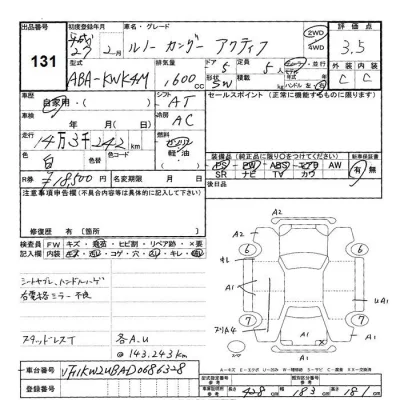 出品番号
131
初度登録年月
平成
27年 2月
車名・グレード
ルノー カングー アクティフ
2WD
4WD
評価点
3.5
型式
ABA-KWK4M
排気量
1,600
cc
ドア
5
定員
5人
形状
SW
ハンドル 左
外装 内装
C C
車歴
自家用・( )
シフト
AT
セールスポイント (正常に機能するものに限ります)
車検
年 月(日)
冷房
AC
走行
14万3千242km
燃料
ガソリン
軽油
色
白
色替
色コード
装備品 (純正品に限り○をつけてください)
新車保証書
PS PW
AW
有・無
SR ナビ TV カワ
R券
¥18,500円
名変期限
月 日
後日品
注意事項申告欄 (不具合内容等は具体的に記入して下さい)
修復歴 有 [箇所 ]
検査員
記入欄
FW キズ・ ・ヒビ割・リペア跡・×要
内装 ・コゲ・穴・ ・キレ・
シートヤブレ、ハンドルハゲ
右電格ミラー不良
スタッドレスT
各A.U
@143,243km
A2
キレ
A1
6
6
7
7
A1
A2
A1
UA1
A1
スペア
車台番号
VF1KW2UBAD0686328
登録番号
A-キズ E-エクボ U-凹み W-補修跡 S-サビ C-腐食 X-要交換
型式指定番号
類別区分番号
車両寸法
428 cm
183 cm
181 cm